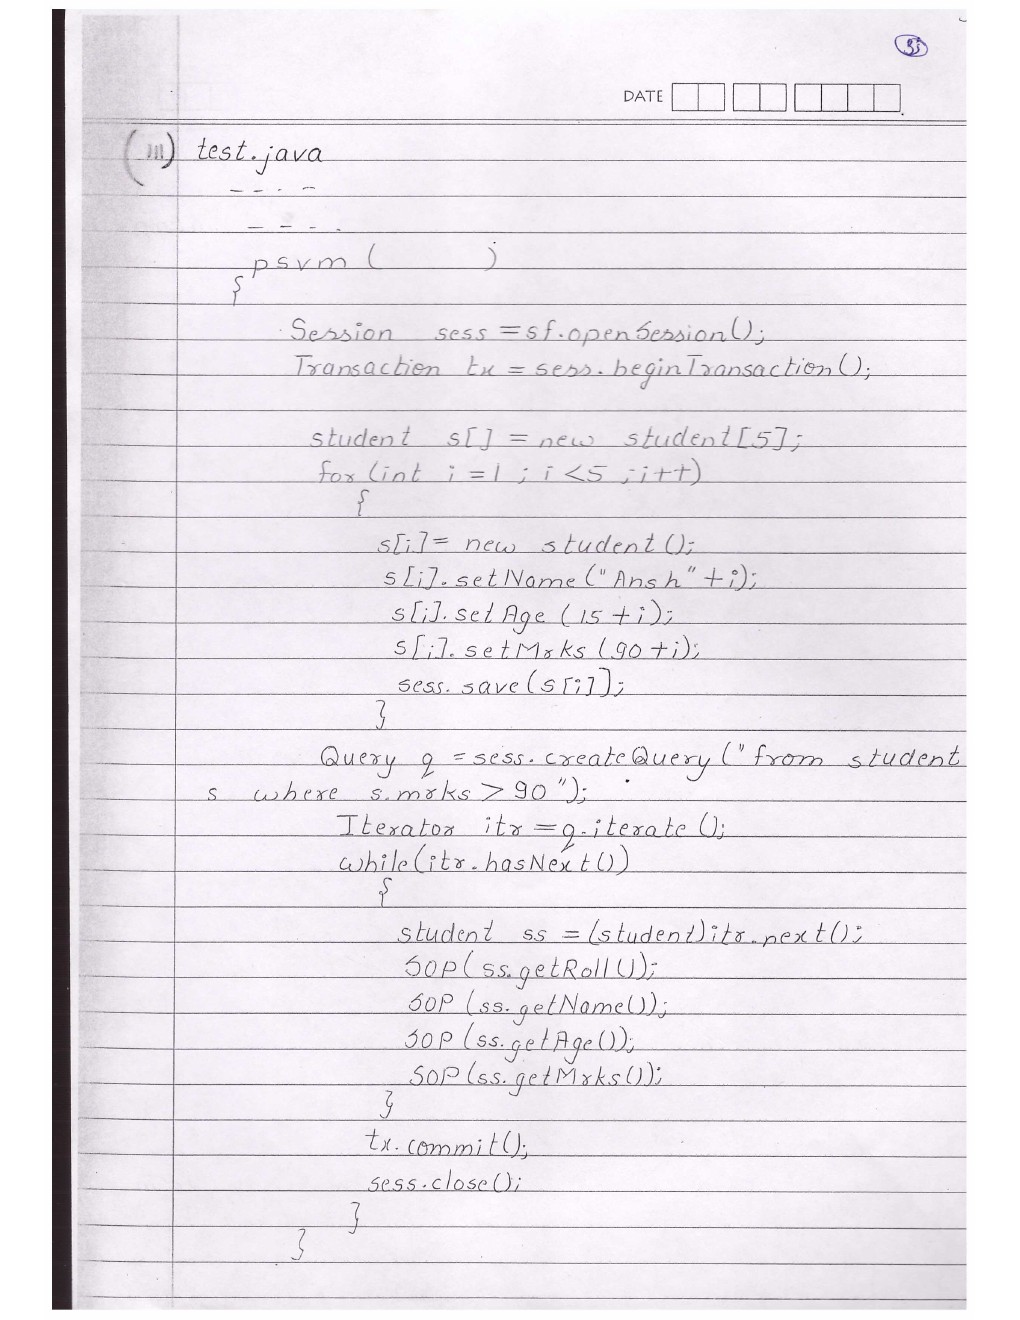 35
DATE
(iii) test.java
- - - -
- - - -
psvm (          )
{
Session sess = sf.openSession();
Transaction tx = sess.beginTransaction();
student s[] = new student[5];
for (int i = 1 ; i < 5 ; i++)
{
s[i] = new student();
s[i].setName("Ansh" + i);
s[i].setAge(15 + i);
s[i].setMrks(90 + i);
sess.save(s[i]);
}
Query q = sess.createQuery("from student
s where s.mrks > 90");
Iterator itr = q.iterate();
while(itr.hasNext())
{
student ss = (student)itr.next();
SOP(ss.getRoll());
SOP(ss.getName());
SOP(ss.getAge());
SOP(ss.getMrks());
}
tx.commit();
sess.close();
}
}